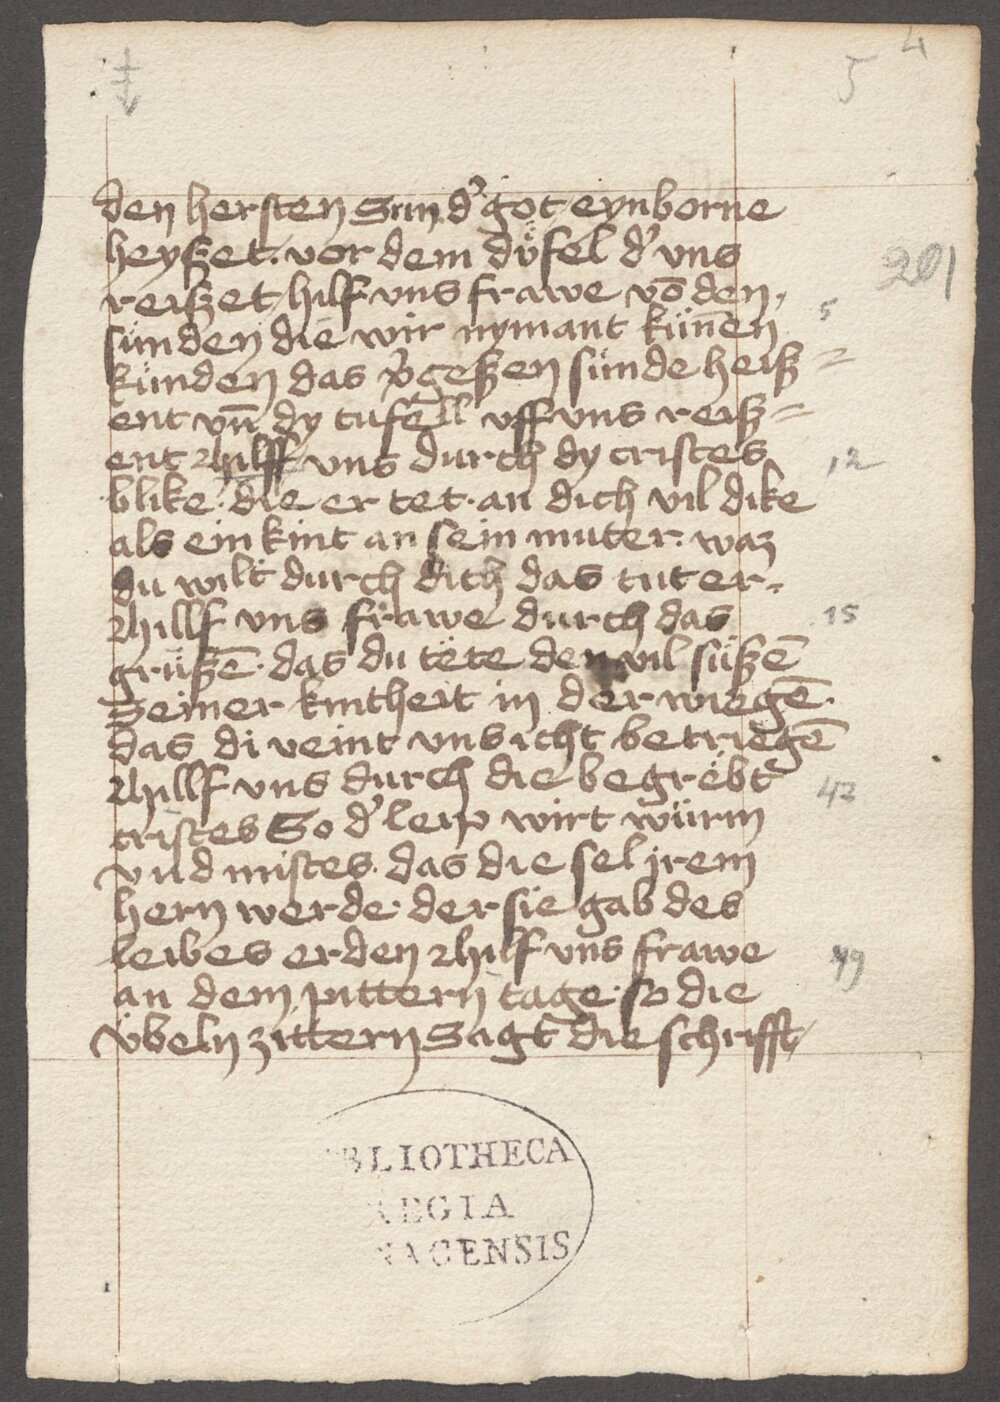 4
5
den hersten Sun d' got eynborne
heyßet. vor dem düfel d' vns
201
reißet hilf vns frawe vō den
5
sünden die wir nymant künēn
künden das v'geßen sünde heiß=
ent vn̄ dy tufell vff vns reiß=
ent Hilff vns durch dy cristes
12
blike. die er tet. an dich vil dike
als ein kint an sein muter. waz
du wilt durch dich das tut er.
Hillf vns frawe durch das
15
grüßē. das du tete den vil süßē
Seiner kintheit in der wiegē.
das di veint vns icht betriegē
Hillf vns durch die begrebt
42
cristes So d' leip wirt würm
vnd mistes. das die sel jrem
hern werde. der sie gab des
leibes erden Hilf vns frawe
49
an dem pittern tage. so die
übeln zittern Sagt die schrifft
BLIOTHECA
REGIA
NACENSIS